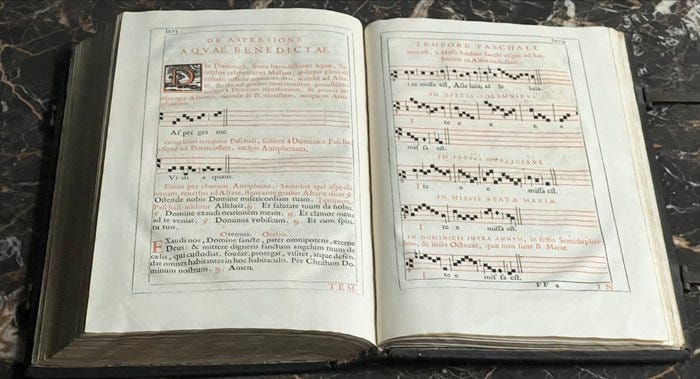 lxvj
DE ASPERSIONE
AQVAE BENEDICTAE
Die Dominica, finita benedictione aquæ, Sa-
cerdos celebraturus Missam, indutus pluviali
coloris officio
accedit ad Alta-
re, & ibi ad gradus
genuflexus
Tempore Paschali, accipit à Diacono aspersorium, & primo ter
aspergit Altare, deinde se & ministros, incipiens Anti-
phonam.
As per ges me.
tempore Paschali, scilicet à Dominica Paschæ
vsque ad Pentecosten, incipit Antiphonam,
Vi di a quam.
Finita per chorum Antiphona, Sacerdos qui aspersit
aquam, reuersus ad Altare, stans ante gradus Altaris
Ostende nobis Domine misericordiam tuam. Tempore
Paschali additur Alleluia. ℟. Et salutare tuum da nobis.
℣. Domine exaudi orationem meam. ℟. Et clamor meus
ad te veniat. ℣. Dominus vobiscum. ℟. Et cum spiri-
tu tuo.
Oremus. Oratio.
Exaudi nos, Domine sancte, pater omnipotens, æterne
Deus: & mittere digneris sanctum angelum tuum de
cælis, qui custodiat, foueat, protegat, visitet, atque defen-
dat omnes habitantes in hoc habitaculo. Per Christum Do-
minum nostrum. ℟. Amen.
TEM-
lxvij
TEMPORE PASCHALI,
hoc est, à Missa Sabbati sancti vsque ad Sab-
batum in Albis inclusiue.
I te missa est, Alle luia, al le luia.
IN FESTIS SOLEMNIBVS
I te e e
mis sa est.
IN FESTIS DVPLICIBVS
I te e missa est.
IN MISSIS BEATÆ MARIÆ
I te e missa est.
IN DOMINICIS INFRA ANNVM, in festis Semiduplici-
bus, & infra Octauas, quæ non sunt B. Mariæ.
I te e mis sa est.
FF 4
IN